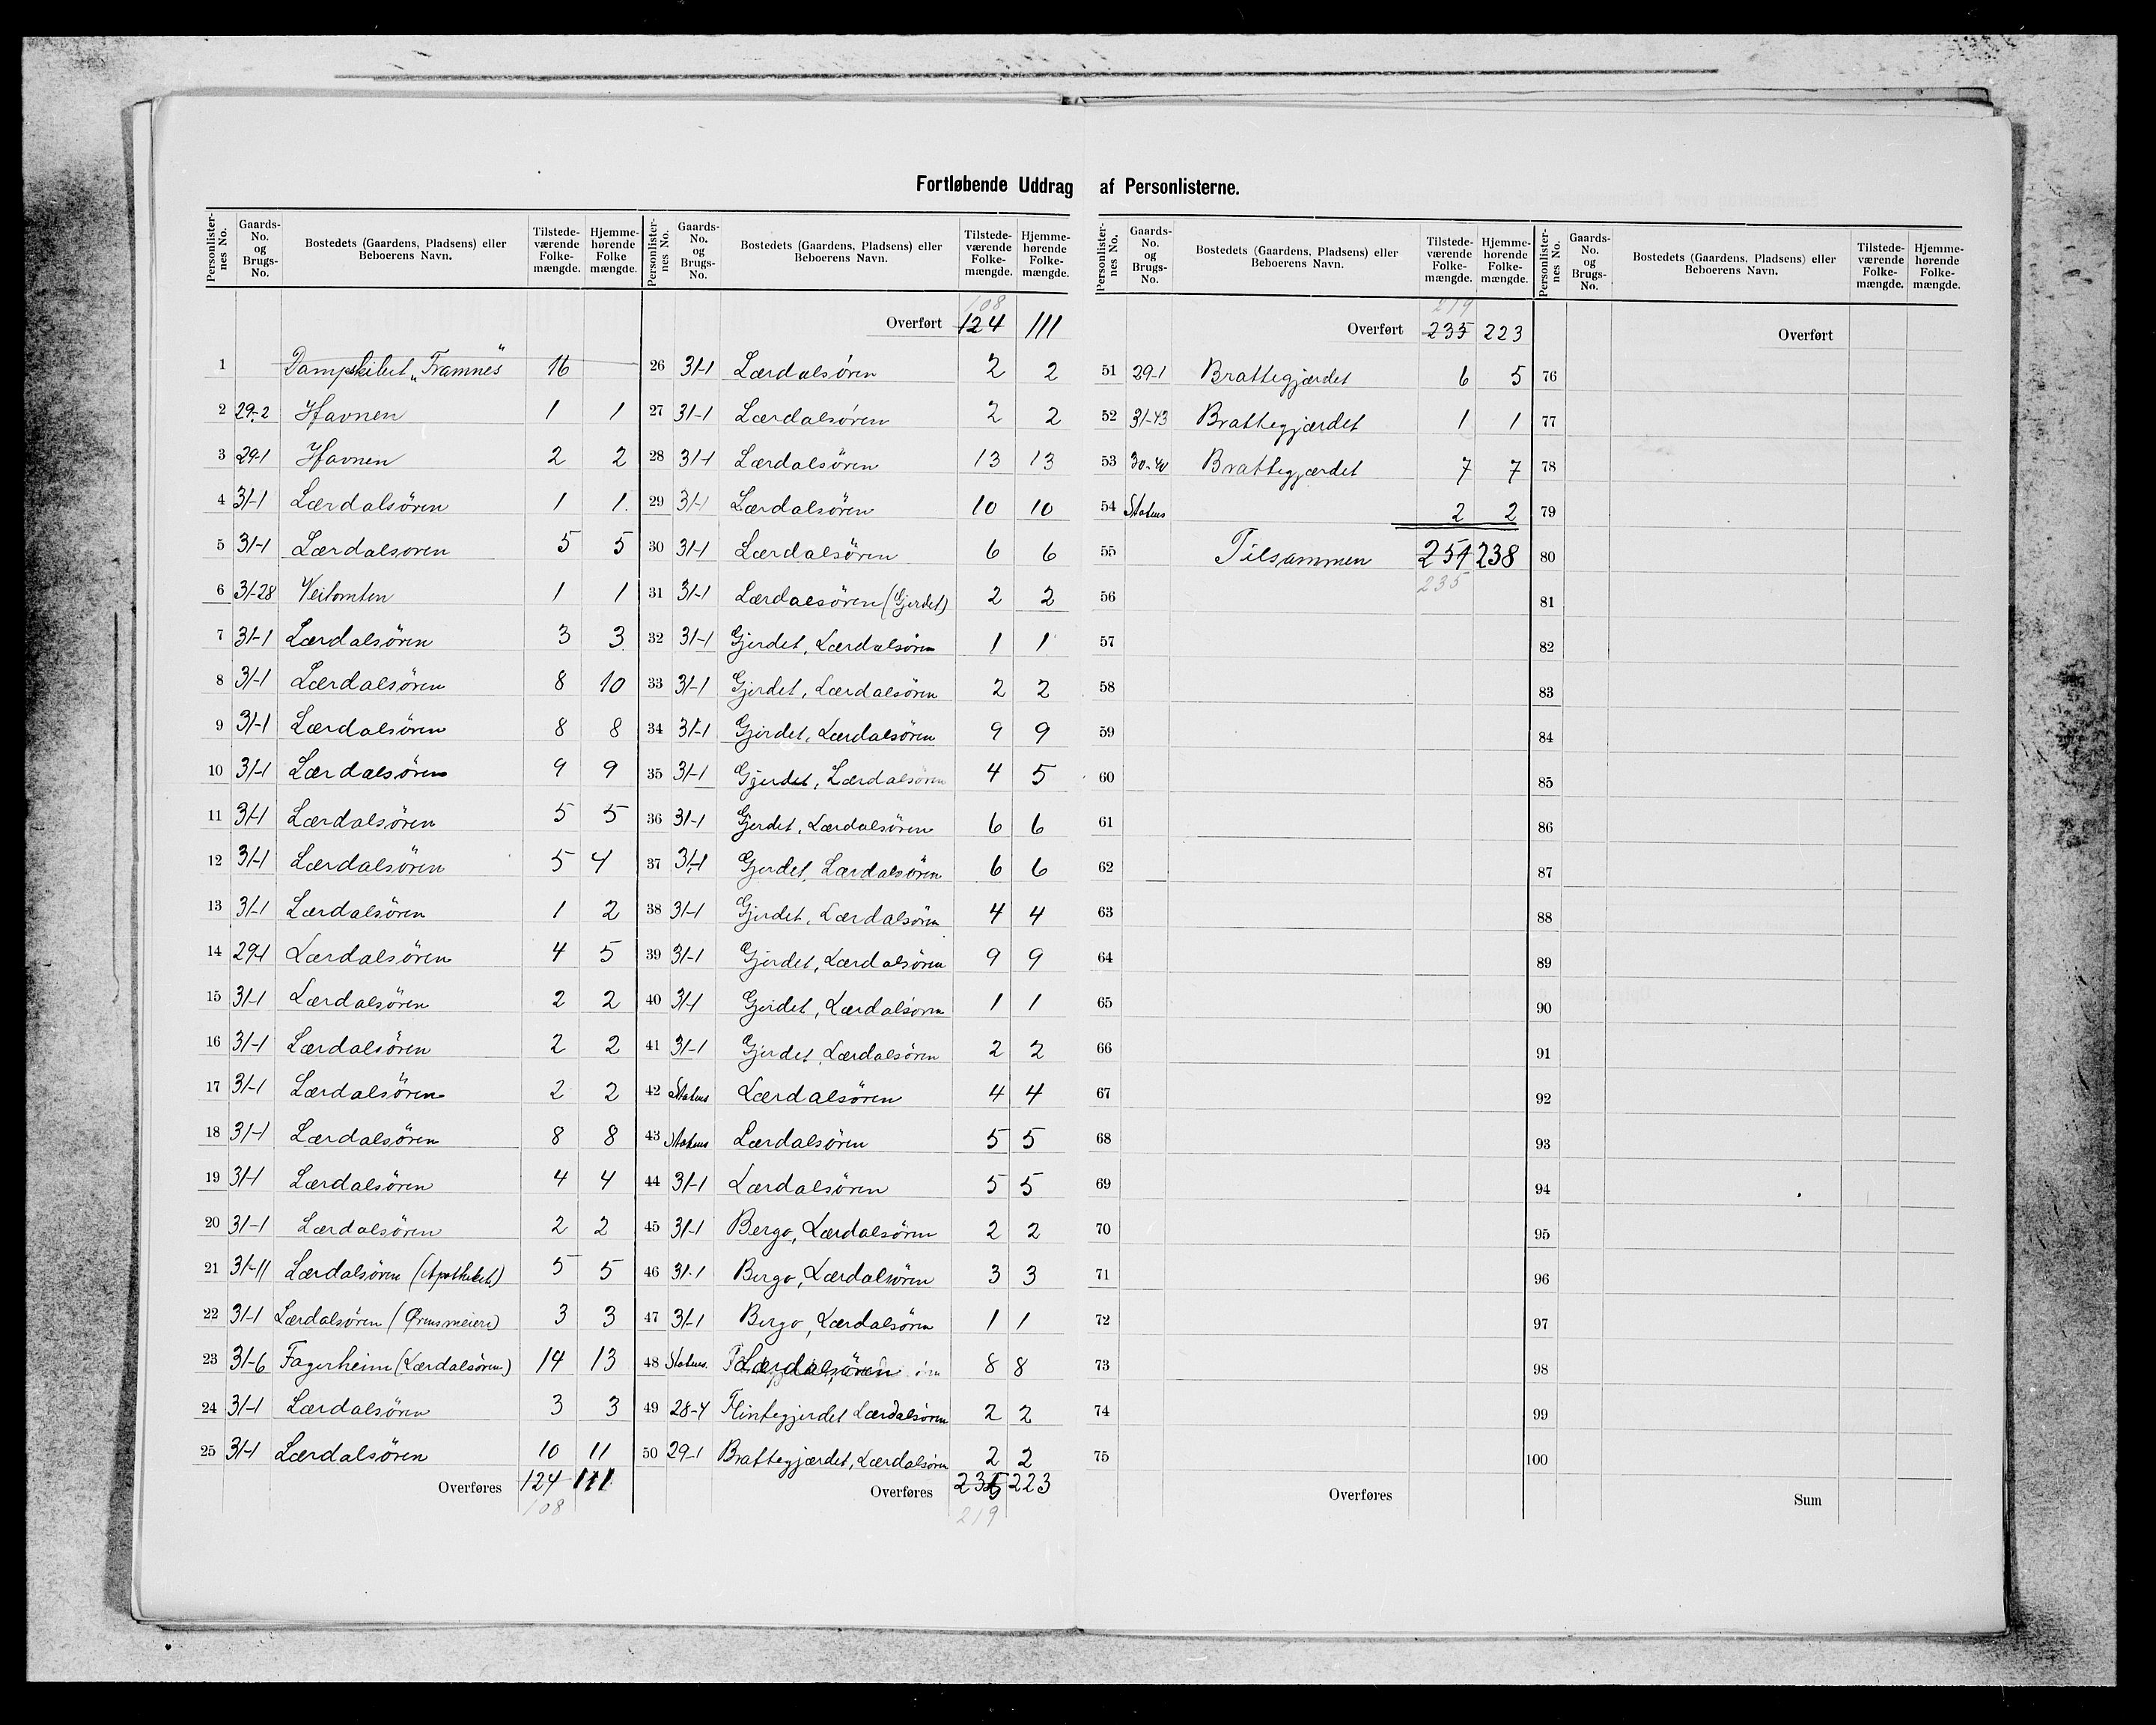 Fortløbende Uddrag af Personlisterne.
Personlisternes No. Gaards-No. og Brugs-No. Bostedets (Gaardens, Pladsens) eller Beboerens Navn. Tilstedeværende Folkemængde. Hjemmehørende Folkemængde.
1 Dampskibet „Framnes" 16
2 29-2 Havnen 1 1
3 29-1 Havnen 2 2
4 31-1 Lærdalsören 1 1
5 31-1 Lærdalsoren 5 5
6 31-28 Veitomten 1 1
7 31-1 Lærdalsören 3 3
8 31-1 Lærdalsören 8 10
9 31-1 Lærdalsören 8 8
10 31-1 Lærdalsören 9 9
11 31-1 Lærdalsören 5 5
12 31-1 Lærdalsören 5 4
13 31-1 Lærdalsören 1 2
14 29-1 Lærdalsören 4 5
15 31-1 Lærdalsören 2 2
16 31-1 Lærdalsören 2 2
17 31-1 Lærdalsören 2 2
18 31-1 Lærdalsören 8 8
19 31-1 Lærdalsören 4 4
20 31-1 Lærdalsören 2 2
21 31-11 Lærdalsören (Apotheket) 5 5
22 31-1 Lærdalsören (Ørensmeieri) 3 3
23 31-6 Fagerheim (Lærdalsören) 14 13
24 31-1 Lærdalsören 3 3
25 31-1 Lærdalsören 10 11
Overføres 124 111
108
Personlisternes No. Gaards-No. og Brugs-No. Bostedets (Gaardens, Pladsens) eller Beboerens Navn. Tilstedeværende Folkemængde. Hjemmehørende Folkemængde.
108
Overført 124 111
26 31-1 Lærdalsören 2 2
27 31-1 Lærdalsören 2 2
28 31-1 Lærdalsören 13 13
29 31-1 Lærdalsören 10 10
30 31-1 Lærdalsören 6 6
31 31-1 Lærdalsören (Gjerdet) 2 2
32 31-1 Gjerdet, Lærdalsören 1 1
33 31-1 Gjerdet, Lærdalsören 2 2
34 31-1 Gjerdet, Lærdalsören 9 9
35 31-1 Gjerdet, Lærdalsören 4 5
36 31-1 Gjerdet, Lærdalsören 6 6
37 31-1 Gjerdet, Lærdalsören 6 6
38 31-1 Gjerdet, Lærdalsören 4 4
39 31-1 Gjerdet, Lærdalsören 9 9
40 31-1 Gjerdet, Lærdalsören 1 1
41 31-1 Gjerdet, Lærdalsören 2 2
42 Statens Lærdalsören 4 4
43 Statens Lærdalsören 5 5
44 31-1 Lærdalsören 5 5
45 31-1 Bergo, Lærdalsören 2 2
46 31-1 Bergo, Lærdalsören 3 3
47 31-1 Bergo, Lærdalsören 1 1
48 Statens. Lærdalsören 8 8
49 28-4 Flintegjerdet Lærdalsören 2 2
50 29-1 Brattegjærdet, Lærdalsören 2 2
Overføres 235 223
219
Personlisternes No. Gaards-No. og Brugs-No. Bostedets (Gaardens, Pladsens) eller Beboerens Navn. Tilstedeværende Folkemængde. Hjemmehørende Folkemængde.
219
Overført 235 223
51 29-1 Brattegjærdet 6 5
52 31-43 Brattegjærdet 1 1
53 30-40 Brattegjærdet 7 7
54 Statens 2 2
55 Tilsammen 251 238
235
56
57
58
59
60
61
62
63
64
65
66
67
68
69
70
71
72
73
74
75
Overføres
Personlisternes No. Gaards-No. og Brugs-No. Bostedets (Gaardens, Pladsens) eller Beboerens Navn. Tilstedeværende Folkemængde. Hjemmehørende Folkemængde.
Overført
76
77
78
79
80
81
82
83
84
85
86
87
88
89
90
91
92
93
94
95
96
97
98
99
100
Sum